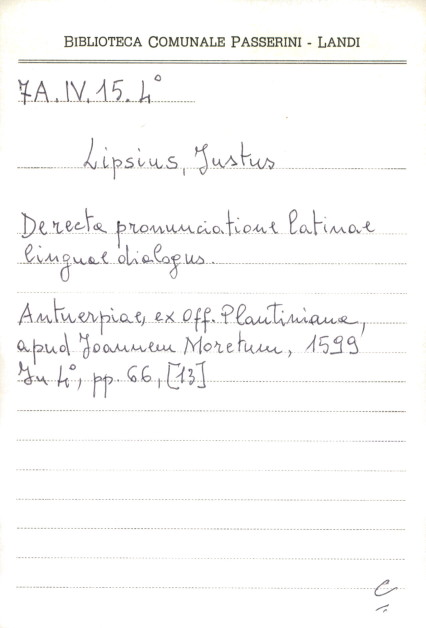 BIBLIOTECA COMUNALE PASSERINI - LANDI
7A.IV.15.4°
Lipsius, Justus
De recta pronunciatione latinae
linguae dialogus.
Antuerpiae, ex off. Plantiniana,
apud Joannem Moretum, 1599
In 4°, pp. 66, [13]
C